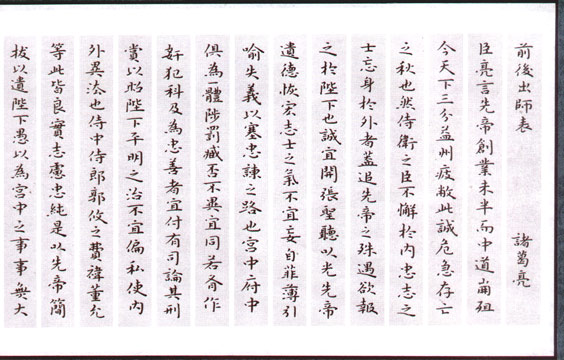 前後出師表 諸葛亮
臣亮言先帝創業未半而中道崩殂
今天下三分益州疲敝此誠危急存亡
之秋也然侍衛之臣不懈於內忠志之
士忘身於外者蓋追先帝之殊遇欲報
之於陛下也誠宜開張聖聽以光先帝
遺德恢宏志士之氣不宜妄自菲薄引
喻失義以塞忠諫之路也宮中府中
俱為一體陟罰臧否不異宜同若有作
奸犯科及為忠善者宜付有司論其刑
賞以昭陛下平明之治不宜偏私使內
外異法也侍中侍郎郭攸之費禕董允
等此皆良實志慮忠純是以先帝簡
拔以遺陛下愚以為宮中之事事無大